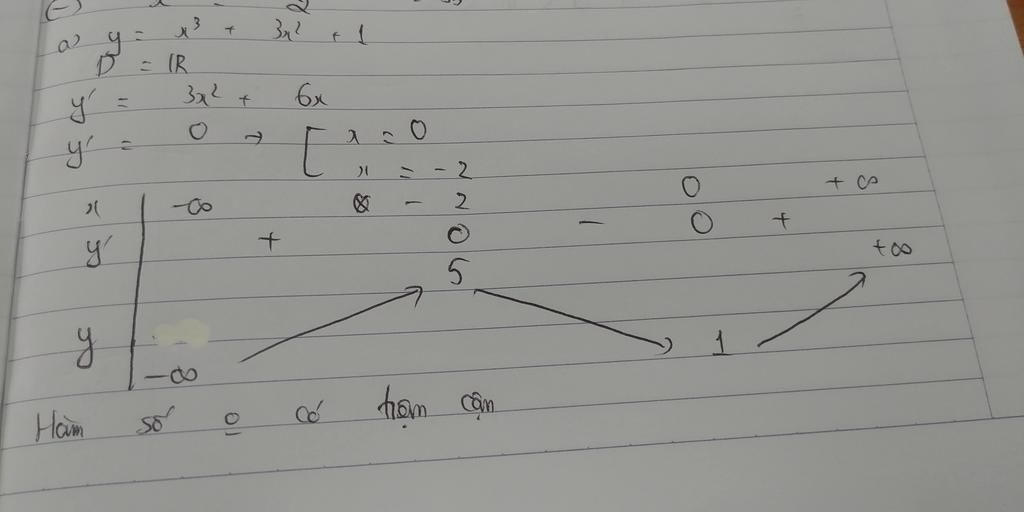 a) y = x³ + 3x² + 1
D = ℝ
y' = 3x² + 6x
y' = 0 → [ x = 0
x = -2
x -∞ -2 0 +∞
y' + 0 - 0 +
y -∞ ↗ 5 ↘ 1 ↗ +∞
Hàm số o có